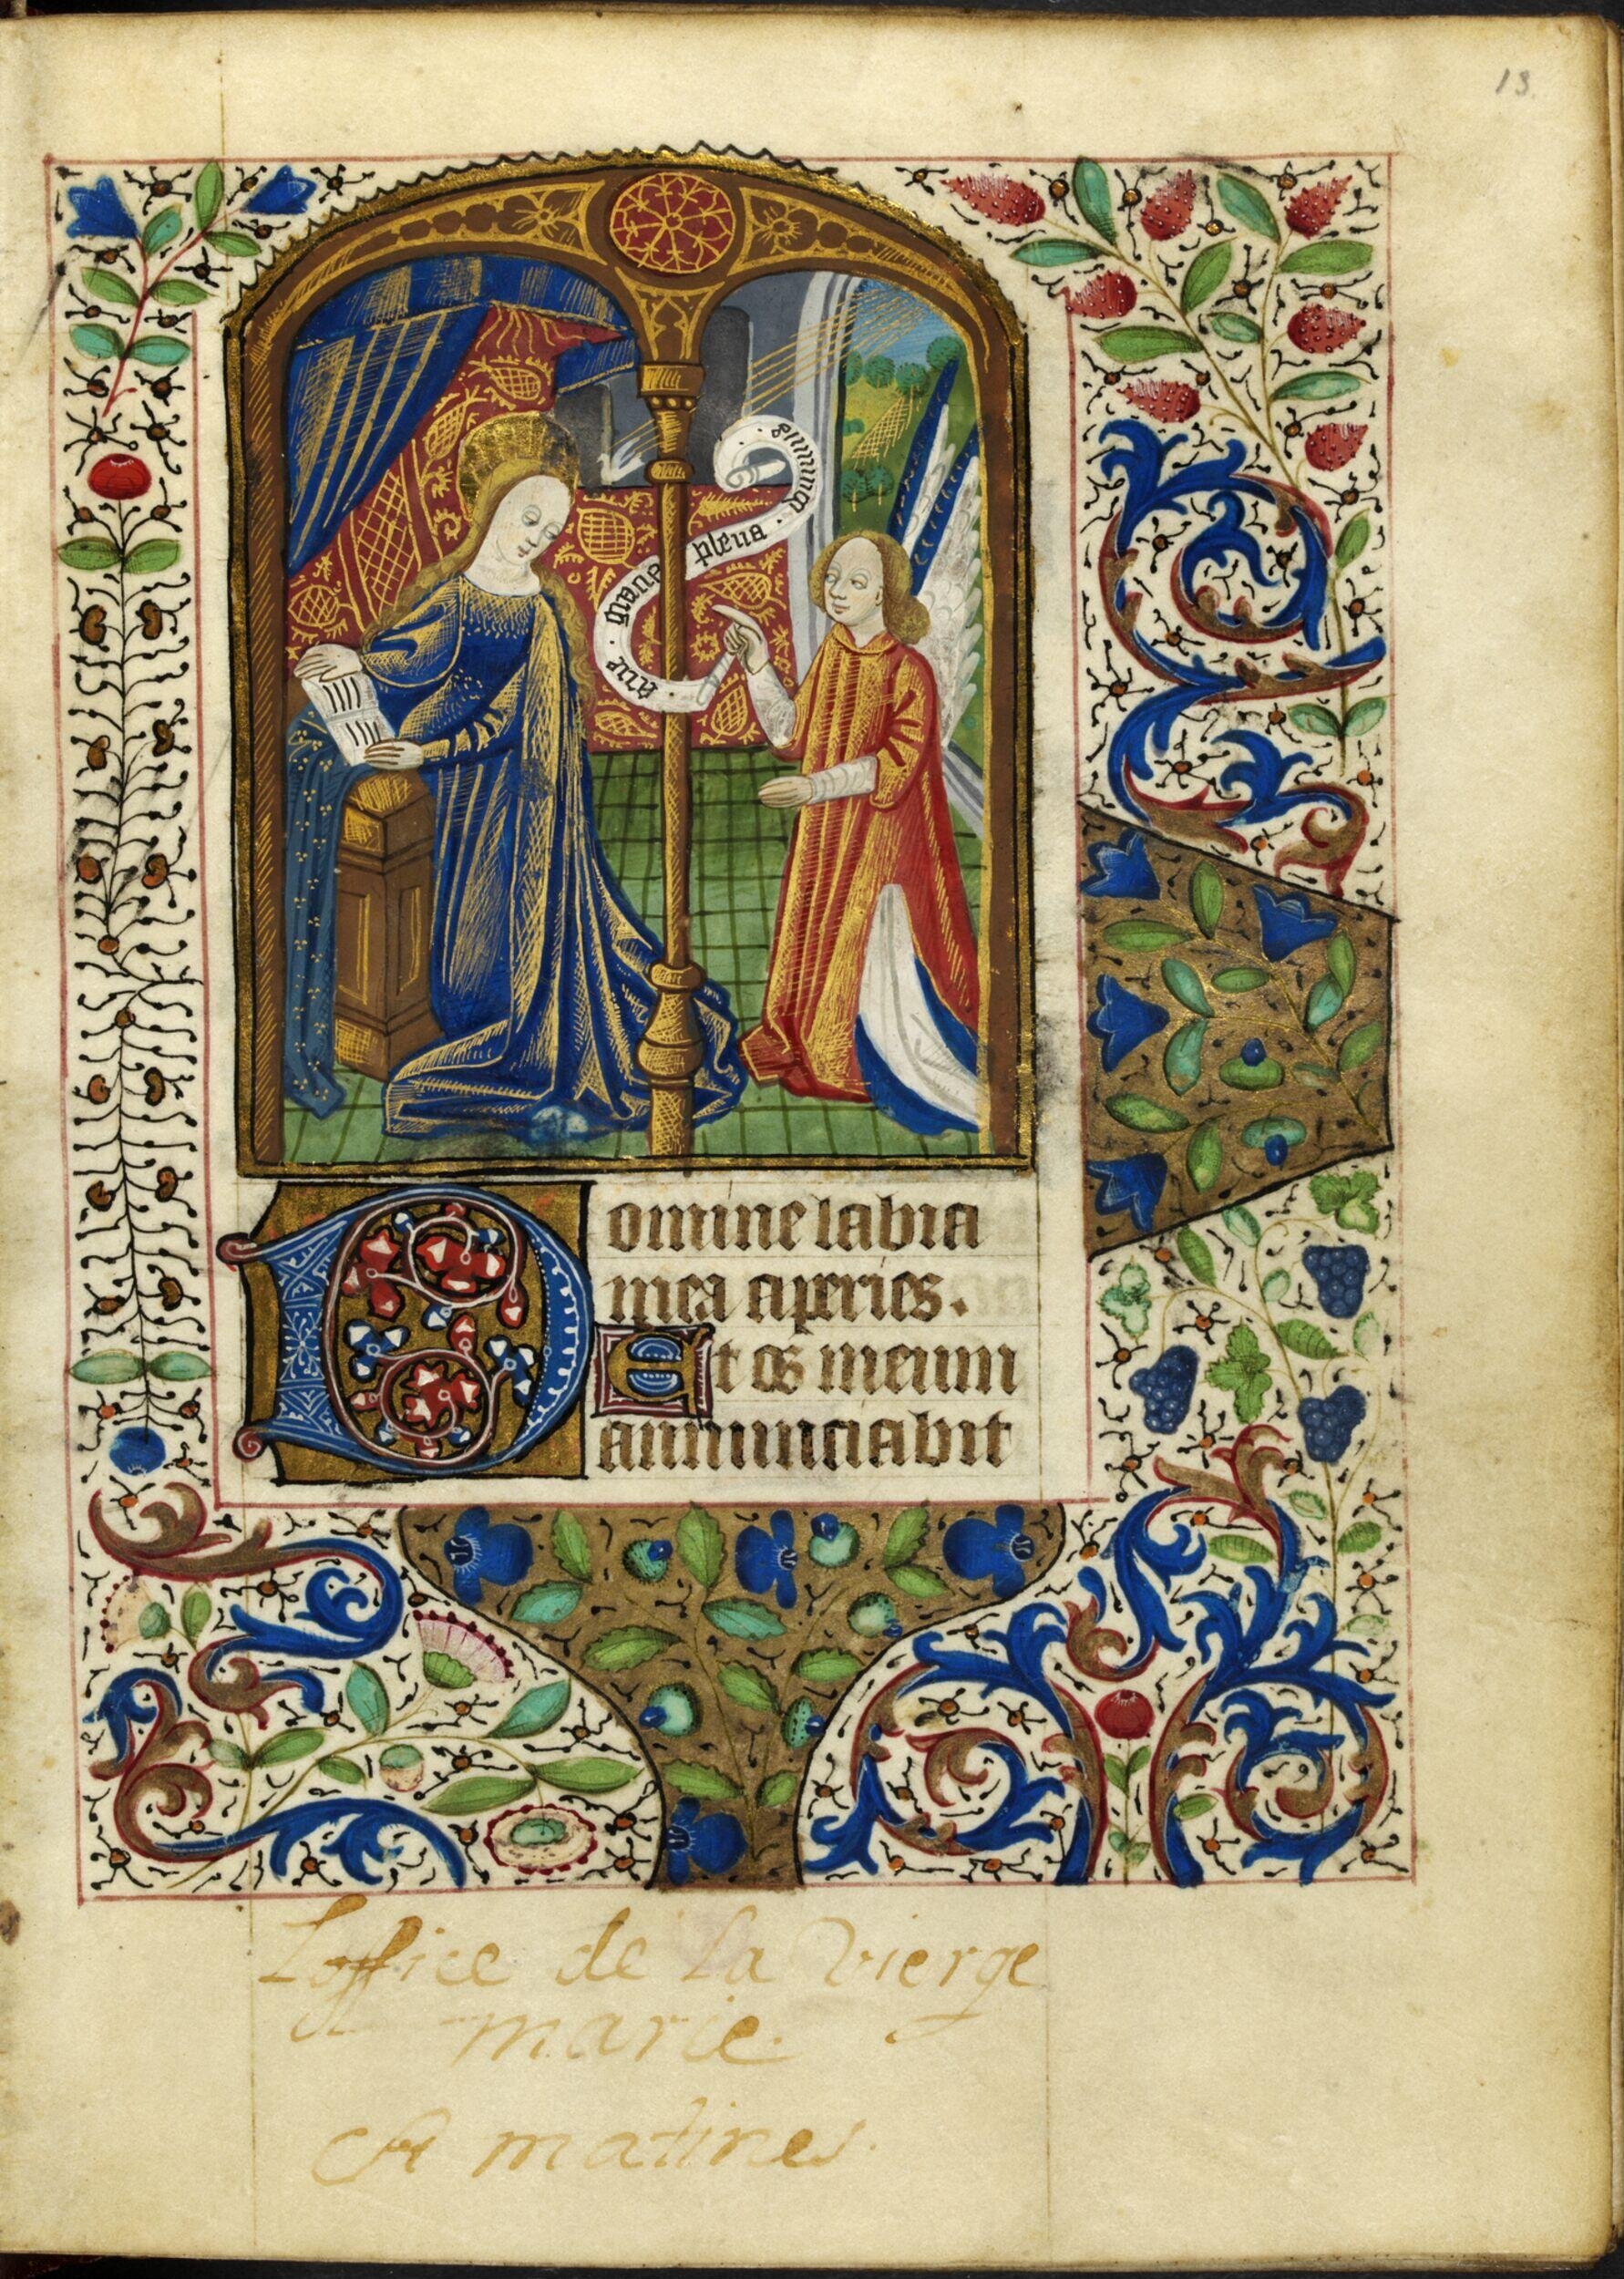 13.
ave · gracia plena · dominus
Domine labia
mea aperies.
Et os meum
annunciabit
Loffice de la vierge
marie.
A matines.